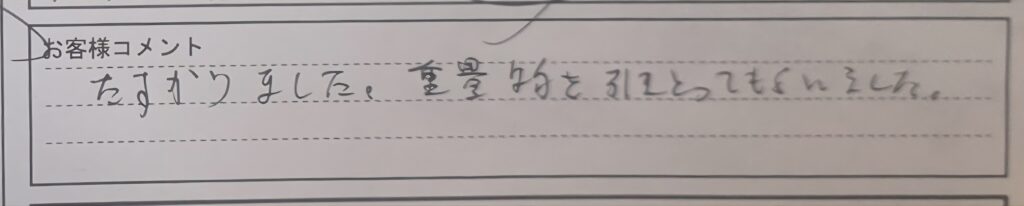 お客様コメント
たすかりました。重量物を引きとってもらいました。